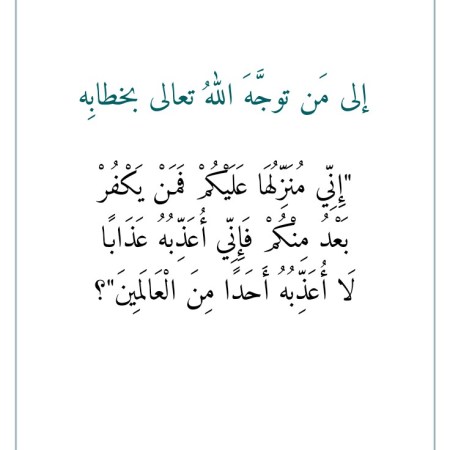 إلى مَن توجَّهَ اللهُ تعالى بخطابِه
"إِنِّي مُنَزِّلُهَا عَلَيْكُمْ فَمَنْ يَكْفُرْ
بَعْدُ مِنْكُمْ فَإِنِّي أُعَذِّبُهُ عَذَابًا
لَا أُعَذِّبُهُ أَحَدًا مِنَ الْعَالَمِينَ"؟